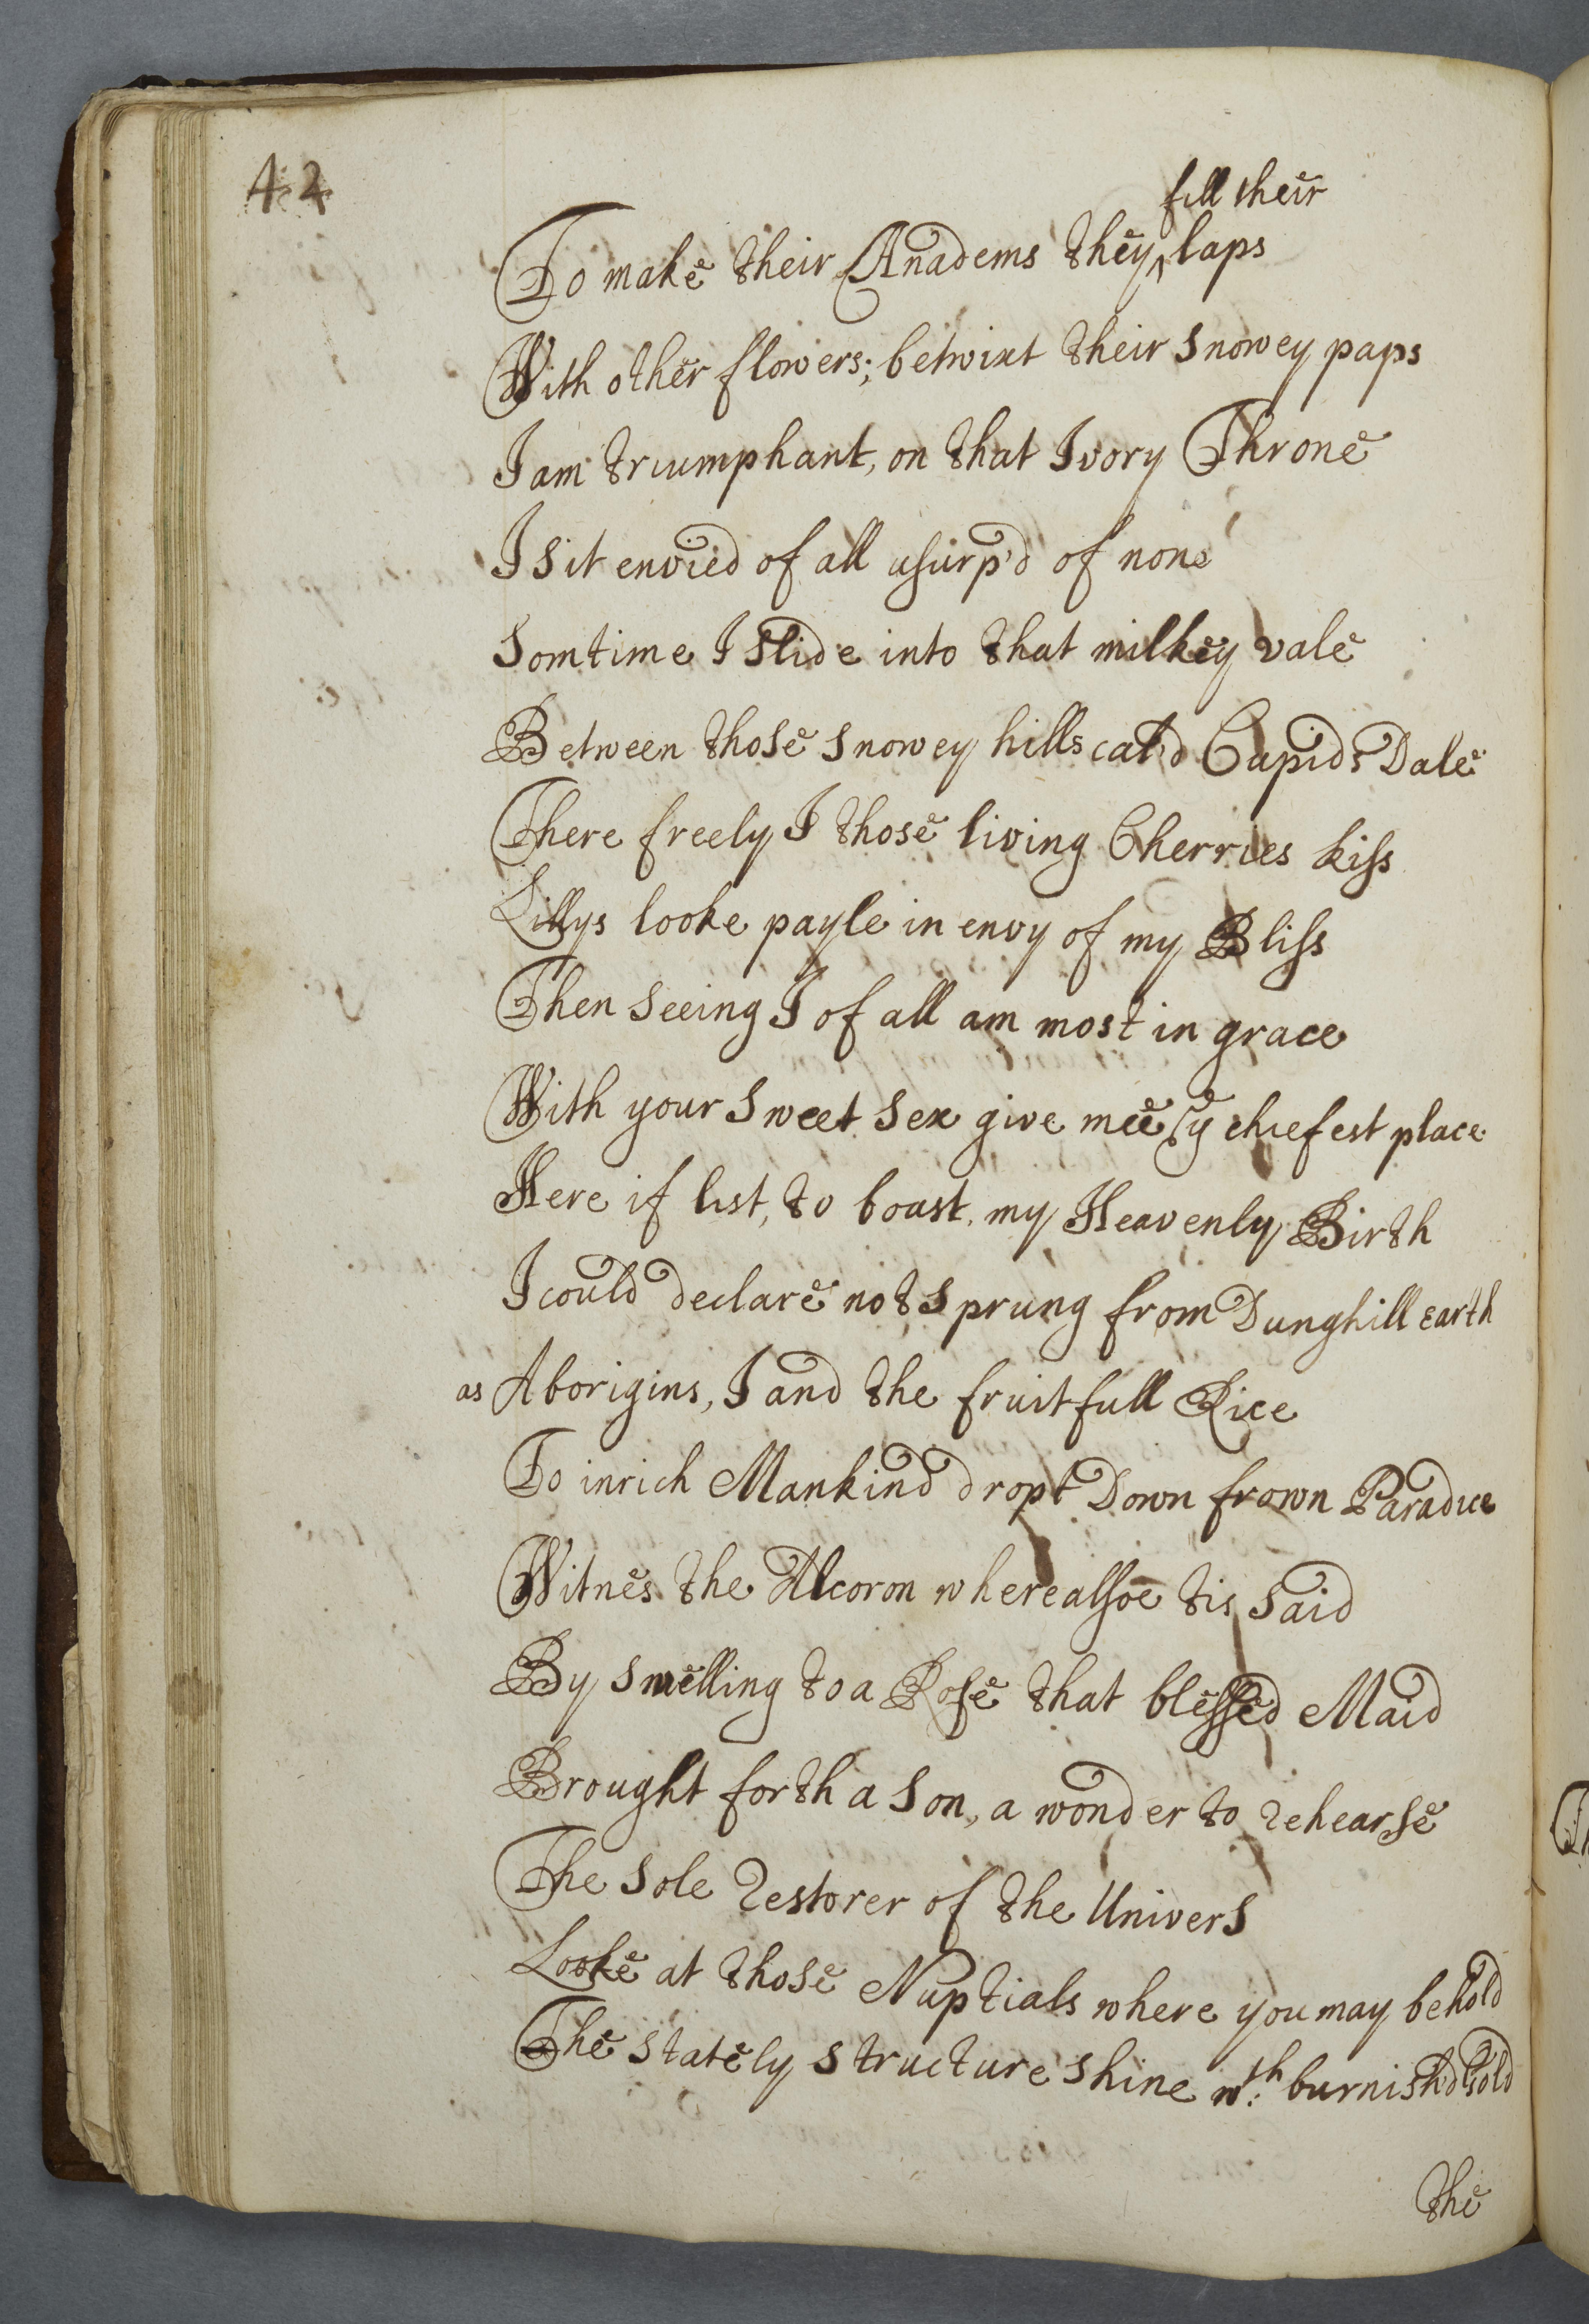 42
fill their
To make their Anadems they ^ laps
With other flowers; betwixt their Snowey paps
I am triumphant, on that Ivory Throne
I Sit envied of all usurp'd of none
Somtime I Slide into that milkey vale
Between those Snowey hills cal'd Cupids Dale
There freely I those living Cherries kiss
Lillys looke payle in envy of my Bliss
Then Seeing I of all am most in grace
With your Sweet Sex give mee ye chiefest place
Here if list, to boast my Heavenly Birth
I could declare not Sprung from Dunghill earth
as Aborigins, I and the fruitfull Rice
To inrich Mankind dropt Down frown Paradice
Witnes the Alcoron where alsoe tis Said
By Smelling to a Rose that blessed Maid
Brought forth a Son, a wonder to rehearse
The Sole restorer of the Univers
Looke at those Nuptials where you may behold
The Stately Structure Shine wth: burnish'd Gold
the